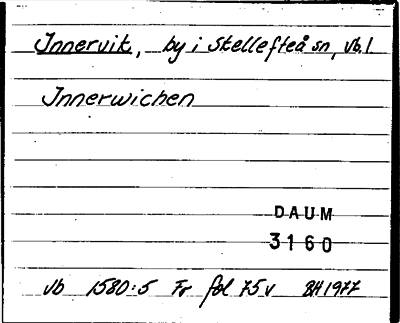 Innervik, by i Skellefteå sn, Vb.l
Innerwichen
DAUM
3160
Vb 1580:5 Fr fol 75v BH 1977